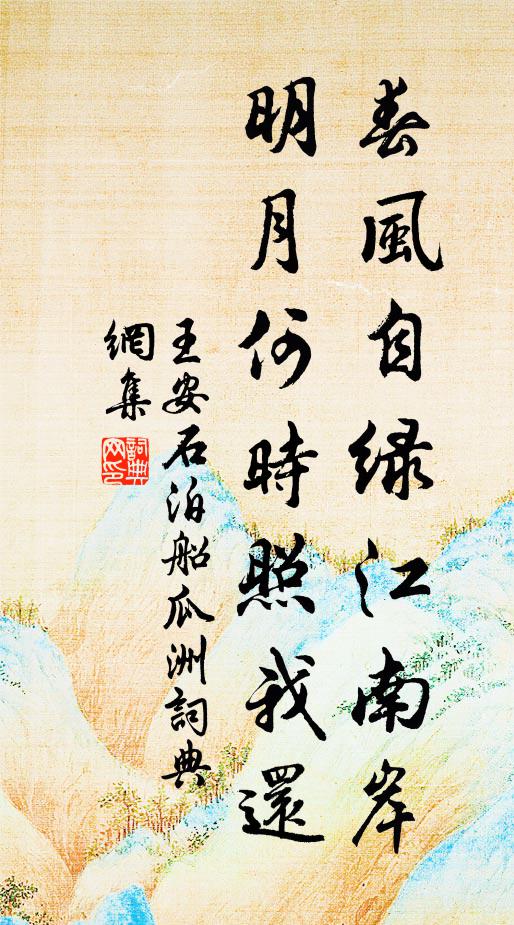 春風自绿江南岸
明月何時照我還
王安石泊船瓜洲詞典
網集
詞典网印